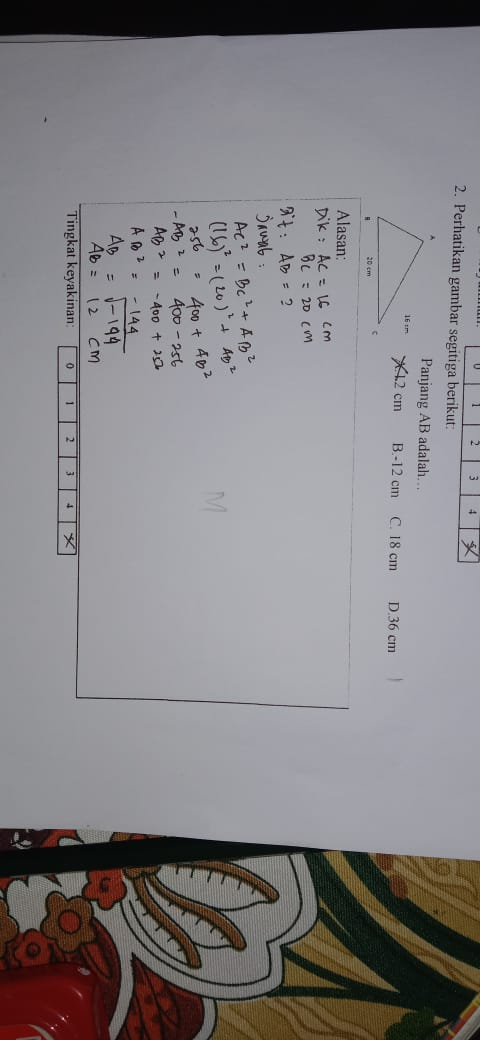 0 1 2 3 4
2. Perhatikan gambar segitiga berikut:
A
16 cm
B
20 cm
C
Panjang AB adalah...
12 cm B.-12 cm C. 18 cm D.36 cm
Alasan:
Dik : AC = 16 cm
BC = 20 cm
Dit : AB = ?
Jawab :
AC² = BC² + AB²
(16)² = (20)² + AB²
256 = 400 + AB²
-AB² = 400 - 256
AB² = -400 + 256
AB² = -144
AB = √-144
AB = 12 cm
M
Tingkat keyakinan: 0 1 2 3 4